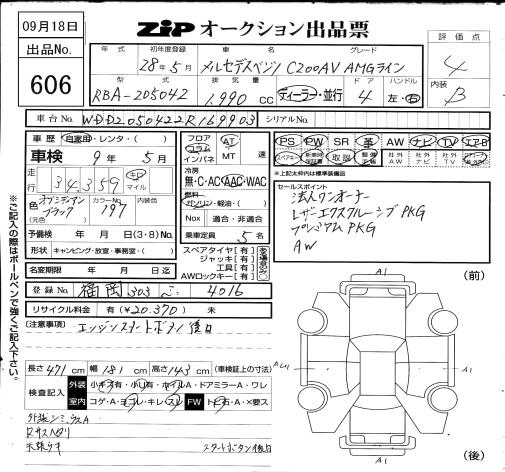 09月18日
出品No.
606
ZIP オークション出品票
評価点
4
内装
B
年式 初年度登録 車名 グレード
28年5月 メルセデスベンツ C200AV AMGライン
型式 排気量 ドア ハンドル
RBA-205042 1,990 cc ディーラー・並行 4 左・右
車台No. WDD2050422R169903 シリアルNo.
車歴 自家用・レンタ・( )
車検 9年 5月
走行 34,359 キロ マイル
色 オブシディアンブラック (元色) カラーNo. 197 内装色
予備検 年 月 日(3・8)No.
形状 キャンピング・放宣・事務室・( )
名変期限 年 月 日迄
フロア コラム インパネ AT MT 速
冷房 無・C・AC・AAC・WAC
燃料 ガソリン・軽油・( )
Nox 適合・非適合
乗車定員 5名
スペアタイヤ[有]
ジャッキ[有]
工具[有]
AWロックキー[有]
PS PW SR 革 AW ナビ TV エアB
取説 社外AW 社外ナビ 社外TV
▲上記太枠内は標準装備品
セールスポイント
法人ワンオーナー
レザーエクスクルーシブPKG
プレミアムPKG
AW
登録No. 福岡 303 4016
リサイクル料金 有(¥20,370) 未
(注意事項) エンジンスタートボタン後日
長さ 471 cm 幅 181 cm 高さ 143 cm (車検証上の寸法)
検査記入 外装 小キズ有・小凹有・ホイルA・ドアミラーA・ワレ
室内 コゲ・A・ヨゴレ・キレ・スレ FW トビ石・A・X要ス
天張ウキ
スタートボタン後日
※ご記入の際はボールペンで強くご記入下さい。
(前)
A1
A1
A1
(後)